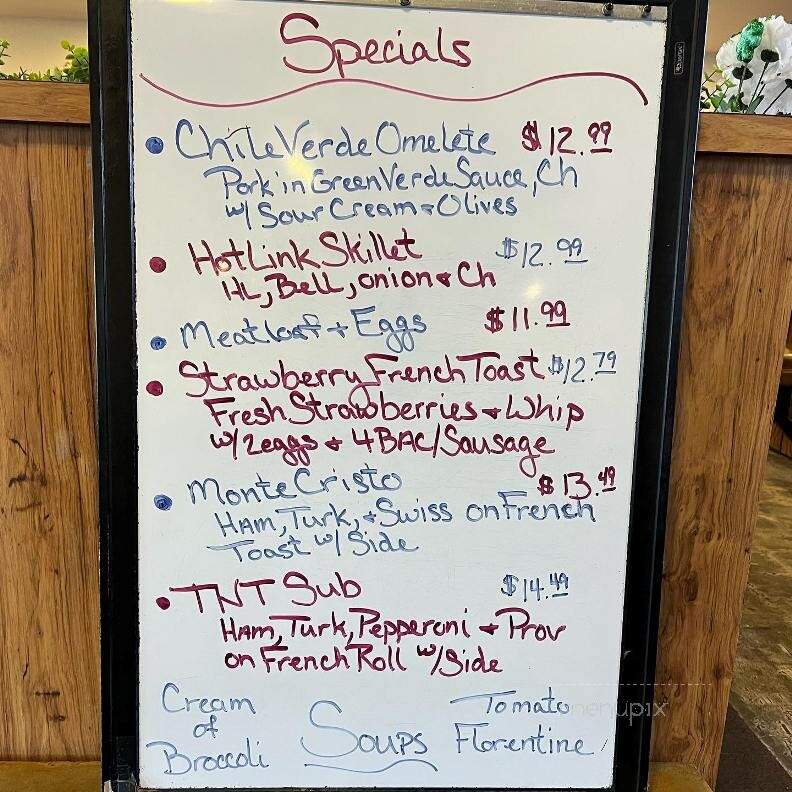 Specials
• Chile Verde Omelete $12.99
Pork in Green Verde Sauce, Ch
w/ Sour Cream & Olives
• Hot Link Skillet $12.99
HL, Bell, onion & Ch
• Meatloaf + Eggs $11.99
• Strawberry French Toast $12.79
Fresh Strawberries & Whip
w/ 2eggs & 4 BAC/Sausage
• Monte Cristo $13.49
Ham, Turk, & Swiss on French
Toast w/ Side
• TNT Sub $14.49
Ham, Turk, Pepperoni & Prov
on French Roll w/Side
Cream of Broccoli
Soups
Tomato Florentine
menupix